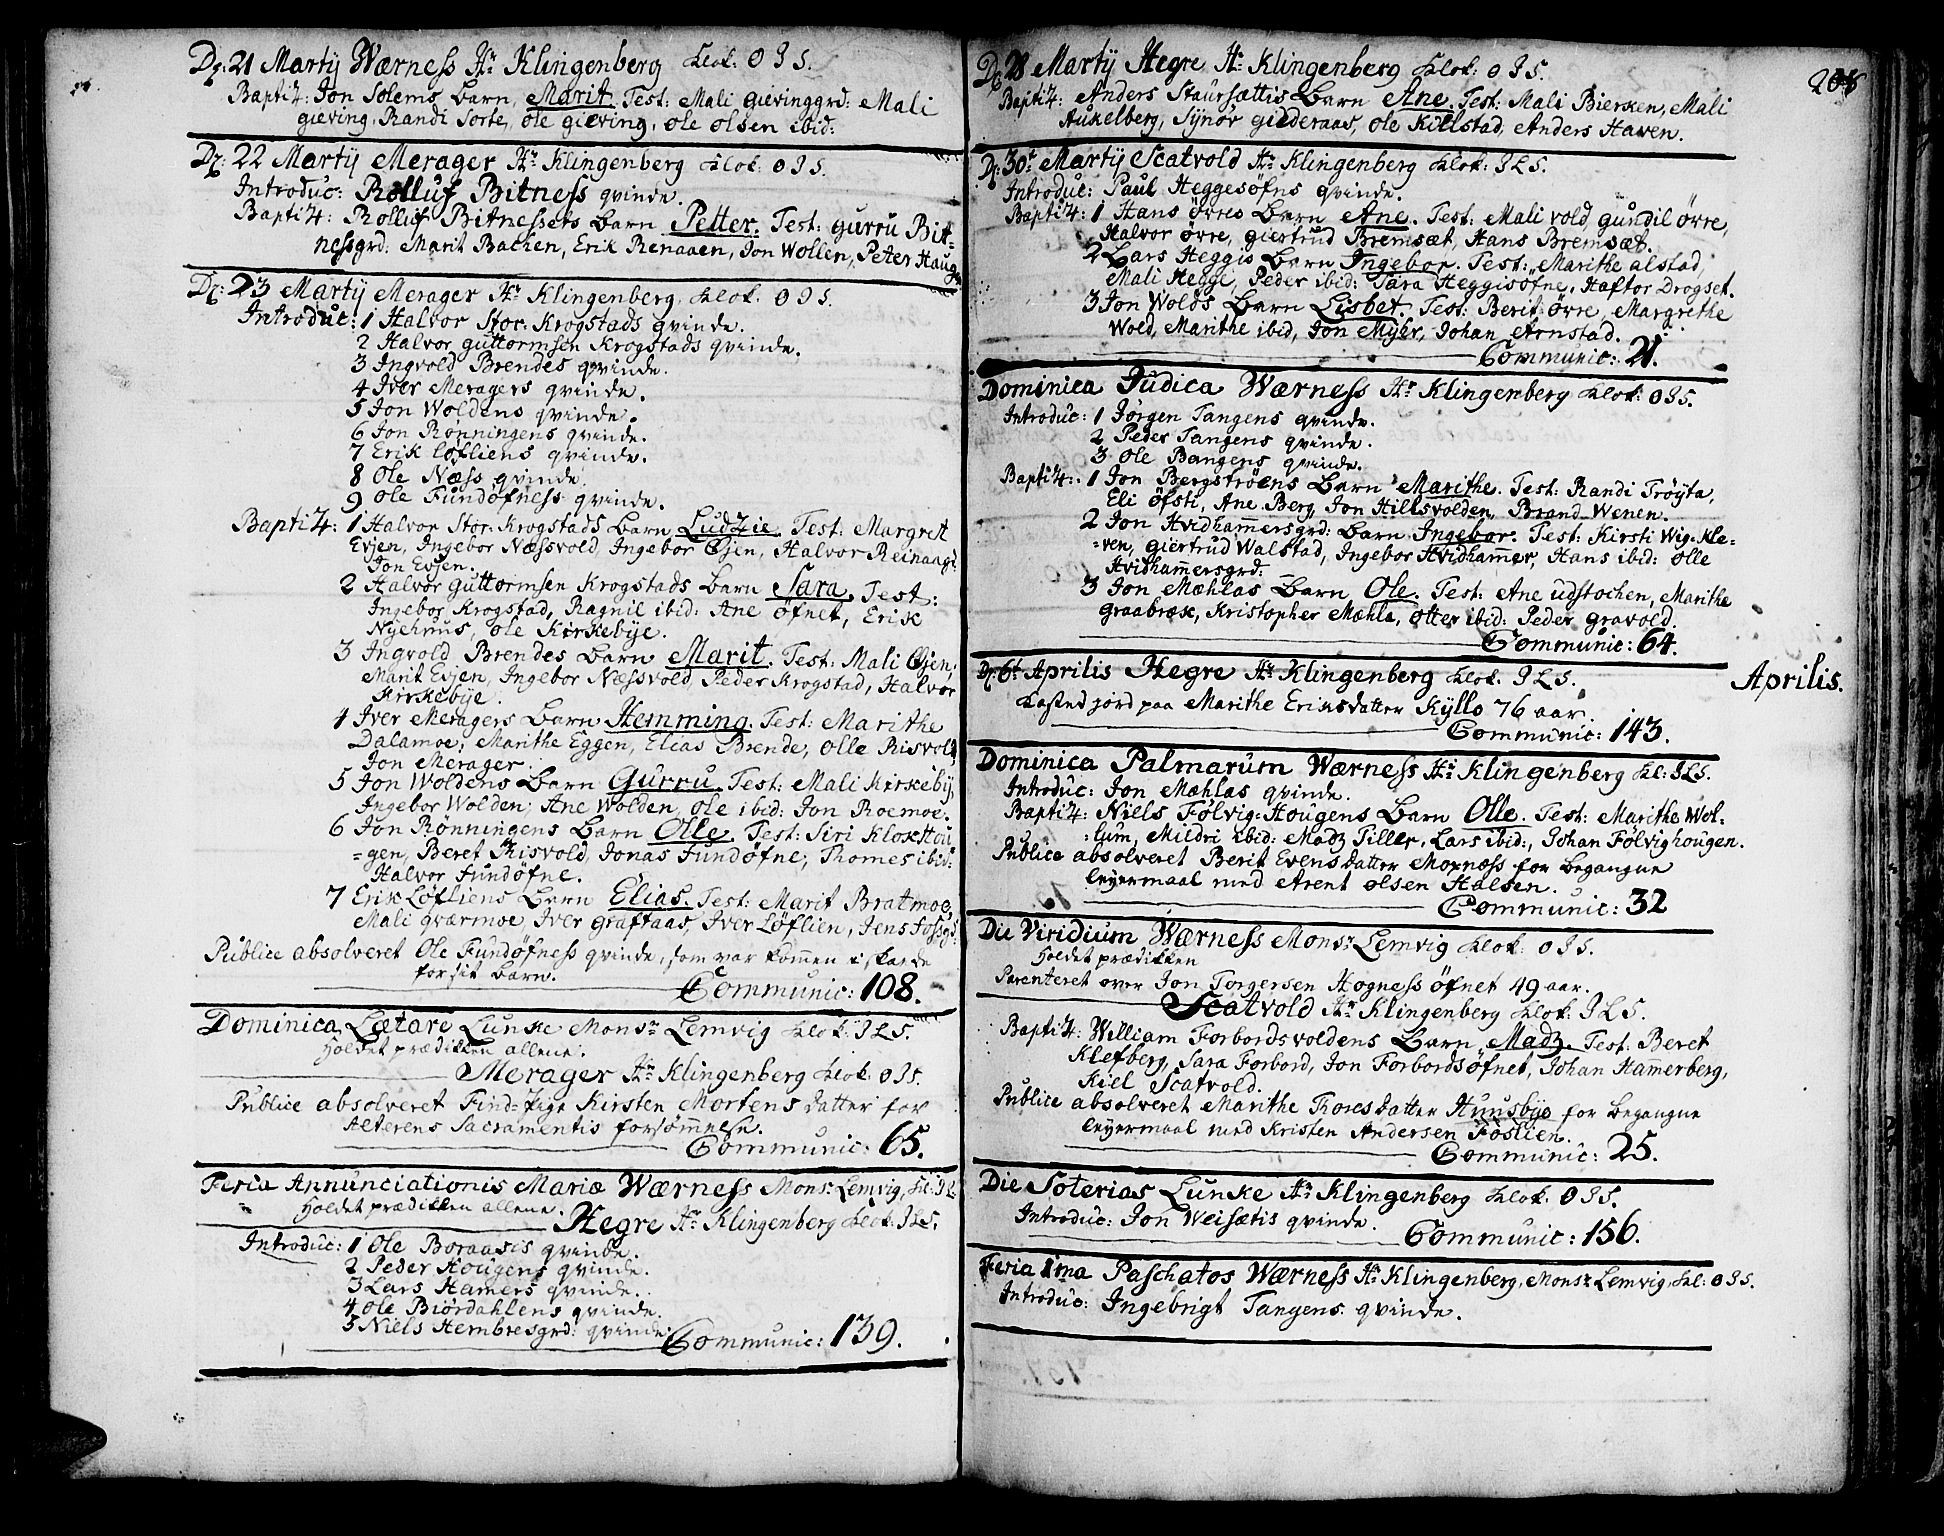 Dg: 21 Martij Wærness Hr Klingenberg Klok: O I S.
Baptiz: Jon Solems Barn, Marit. Test: Mali Gievinggrd: Mali
gieving, Randi Sorte, Ole gieving, Ole Olsen ibid:
Dg: 22 Martij Merager Hr Klingenberg Klok: O I S.
Introduc: Rolluf Bitness qvinde.
Baptiz: Rolluf Bitnessets Barn Petter. Test: Gurru Bit-
nessgrd: Marit Bachen, Erik Renaaen, Jon Wollen, Peter Haug
Dg: 23 Martij Merager Hr Klingenberg, Klok: O I S.
Introduc: 1 Halvor Stor: Krogstads qvinde.
2 Halvor Guttormsen Krogstads qvinde.
3 Ingvold Brendes qvinde.
4 Iver Meragers qvinde.
5 Jon Woldens qvinde.
6 Jon Rönningens qvinde.
7 Erik Löfliens qvinde.
8 Ole Næss qvinde.
9 Ole Fundöfness qvinde.
Baptiz: 1 Halvor Stor: Krogstads Barn Lüdzie. Test: Margret
Evjen, Ingebor Næssvold, Ingebor Øjen, Halvor Reinaag:
Jon Evjen.
2 Halvor Guttormsen Krogstads Barn Sara. Test:
Ingebor Krogstad, Ragnil ibid: Ane Öfnet, Erik
Nyehuus, Ole Kirkebye.
3 Ingvold Brendes Barn Marit. Test: Mali Øjen,
Marit Evjen, Ingebor Næssvold, Peder Krogstad, Halvor
Kirkebye.
4 Iver Meragers Barn Hemming. Test: Marithe
Dalamoe, Marithe Eggen, Elias Brende, Olle Risvold,
Jon Merager.
5 Jon Woldens Barn Gurru. Test: Mali Kirkeby,
Ingebor Wolden, Ane Wolden, Ole ibid: Jon Roemoe.
6 Jon Rönningens Barn Olle. Test: Siri KloxHou
=gen, Beret Risvold, Jonas Fundöfne, Thomes ibid:
Halvor Fundöfne.
7 Erik Löfliens Barn Elias. Test: Marit Bratmoe,
Mali qværmoe, Iver Graftaas, Iver Löflien, Jens Fossgd:
Publice absolveret Ole Fundöfness qvinde, som var kommen i skade
for sit Barn.
Communic: 108.
Dominica Lætare Lunke Monsr Lemvig Klok: I L S.
Holdet prædikken allene.
Merager Hr Klingenberg Klok: O I S.
Publice absolveret Kirsten Mortensdatter for
Alterens Sacramentis forsömmelse.
Communic: 65.
Feria Annunciationis Mariæ Wærness Monsr Lemvig, Kl: I L
Holdet prædikken allene.
Hegre Hr Klingenberg Klok: I L S.
Introduc: 1 Ole Boraasis qvinde.
2 Peder Hougens qvinde.
3 Lars Hamers qvinde.
4 Ole Biördahlens qvinde.
5 Niels Hembresgrd: qvinde.
Communic: 139.
Dg 28 Martij Hegre Hr Klingenberg Klok: O I S.
Baptiz: Anders Staursættis Barn Ane. Test: Mali Biersken, Mali
Aukelberg, Synor Giederaas, Ole Killstad, Anders Haven.
Dg: 30t Martij Scatvold Hr Klingenberg Klok: I L S.
Introduc: Paul Heggesöfns qvinde.
Baptiz: 1 Hans Övres Barn Ane. Test: Mali Vold, Gundil Övre,
Halvor Övre, Giertrud Bremsæt, Hans Bremsæt.
2 Lars Heggis Barn Ingebor. Test: Marithe Alstad,
Mali Hegge, Peder ibid: Sara Heggisöfne, Haftor Drogset.
3 Jon Wolds Barn Lisbet. Test: Berit Övre, Margrethe
Wold, Marithe ibid, Jon Myhr, Johan Arnstad.
Communic: 21.
Dominica Judica Wærness Hr Klingenberg Klok: O I S.
Introduc: 1 Jörgen Tangens qvinde.
2 Peder Tangens qvinde.
3 Ole Bangens qvinde.
Baptiz: 1 Jon Bergströens Barn Marithe. Test: Randi Tröyta,
Eli Öfsti, Ane Berg, Jon Hillsvolden, Brand Wenen.
2 Jon Hvidhammersgrd: Barn Ingebor. Test: Kirsti Wig-Kle-
=ven, Giertrud Walstad, Ingebor Hvidhammer, Hans ibid: Olle
Hvidhammersgrd:
3 Jon Mæhlas Barn Ole. Test: Ane Udstochen, Marithe
Graabræk, Kristopher Mæhla, Otter ibid: Peder Gravold.
Communic: 64.
Aprilis.
Dg: 6t Aprilis Hegre Hr Klingenberg Klok. I L S.
Kasted jord paa Marithe Eriksdatter Kyllo 76 aar.
Communic: 143.
Dominica Palmarum Wærness Hr Klingenberg Kl: I L S.
Introduc: Jon Mæhlas qvinde.
Baptiz: Niels Fölvig-Hougens Barn Olle. Test: Marithe Wol-
=lum, Mildri ibid: Madz Tiller, Lars ibid:, Johan Fölvighougen.
Publice absolveret Berit Evensdatter Moxness for begangne
leyermaal med Arent Olsen Halsen.
Communic: 32
Die Viridium Wærness Monsr Lemvig Klok: O I S.
Holdet prædikken
Parenteret over Jon Torgersen Hogness öfnet 49 aar.
Scatvold Hr Klingenberg Klok: I L S.
Baptiz: William Forbordsvoldens Barn Madz. Test: Beret
Klefberg, Sara Forbord, Jon Forbordsöfnet, Johan Hamerberg,
Kiel Scatvold.
Publice absolveret Marithe Thoresdatter Huusbye for begangne
leyermaal med Kristen Andersen Föslien.
Communic: 25.
Die Soterias Lunke Hr Klingenberg Klok. O I S.
Introduc: Jon Weisætis qvinde.
Communic: 156.
Feria 1ma Paschatos Wærness Hr Klingenberg, Monsr Lemvig, Kl: O I S.
Introduc: Ingebrigt Tangens qvinde.